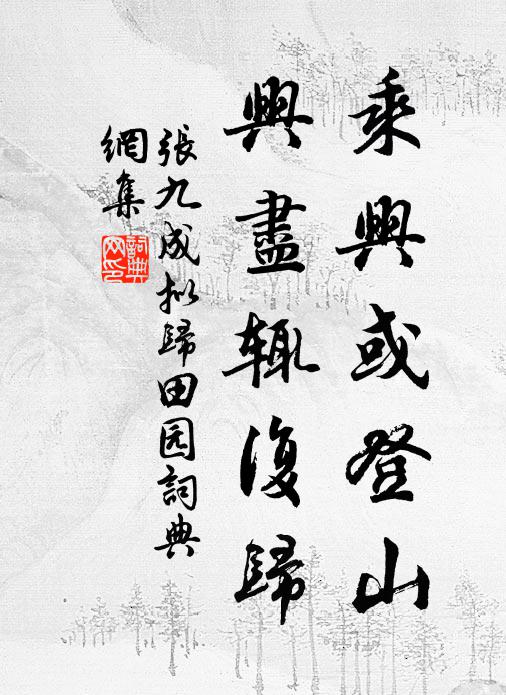 乘興或登山
興盡輒復歸
張九成拟歸田园詞典
網集
詞典
网印